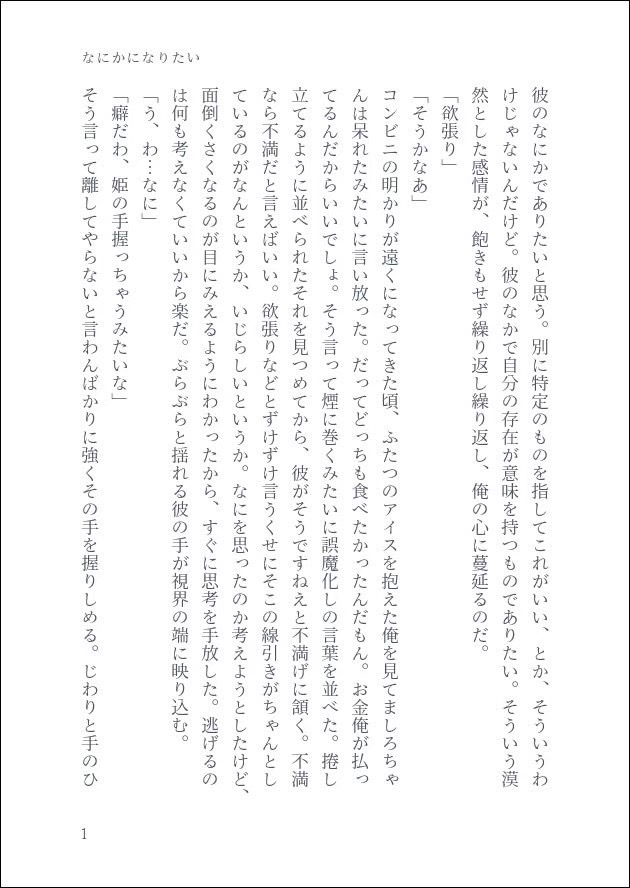 なにかになりたい
彼のなにかでありたいと思う。別に特定のものを指してこれがいい、とか、そういうわ
けじゃないんだけど。彼のなかで自分の存在が意味を持つものでありたい。そういう漠
然とした感情が、飽きもせず繰り返し繰り返し、俺の心に蔓延るのだ。
「欲張り」
「そうかなあ」
コンビニの明かりが遠くになってきた頃、ふたつのアイスを抱えた俺を見てましろちゃ
んは呆れたみたいに言い放った。だってどっちも食べたかったんだもん。お金俺が払っ
てるんだからいいでしょ。そう言って煙に巻くみたいに誤魔化しの言葉を並べた。捲し
立てるように並べられたそれを見つめてから、彼がそうですねえと不満げに頷く。不満
なら不満だと言えばいい。欲張りなどとずけずけ言うくせにそこの線引きがちゃんとし
ているのがなんというか、いじらしいというか。なにを思ったのか考えようとしたけど、
面倒くさくなるのが目にみえるようにわかったから、すぐに思考を手放した。逃げるの
は何も考えなくていいから楽だ。ぶらぶらと揺れる彼の手が視界の端に映り込む。
「う、わ…なに」
「癖だわ、姫の手握っちゃうみたいな」
そう言って離してやらないと言わんばかりに強くその手を握りしめる。じわりと手のひ
1